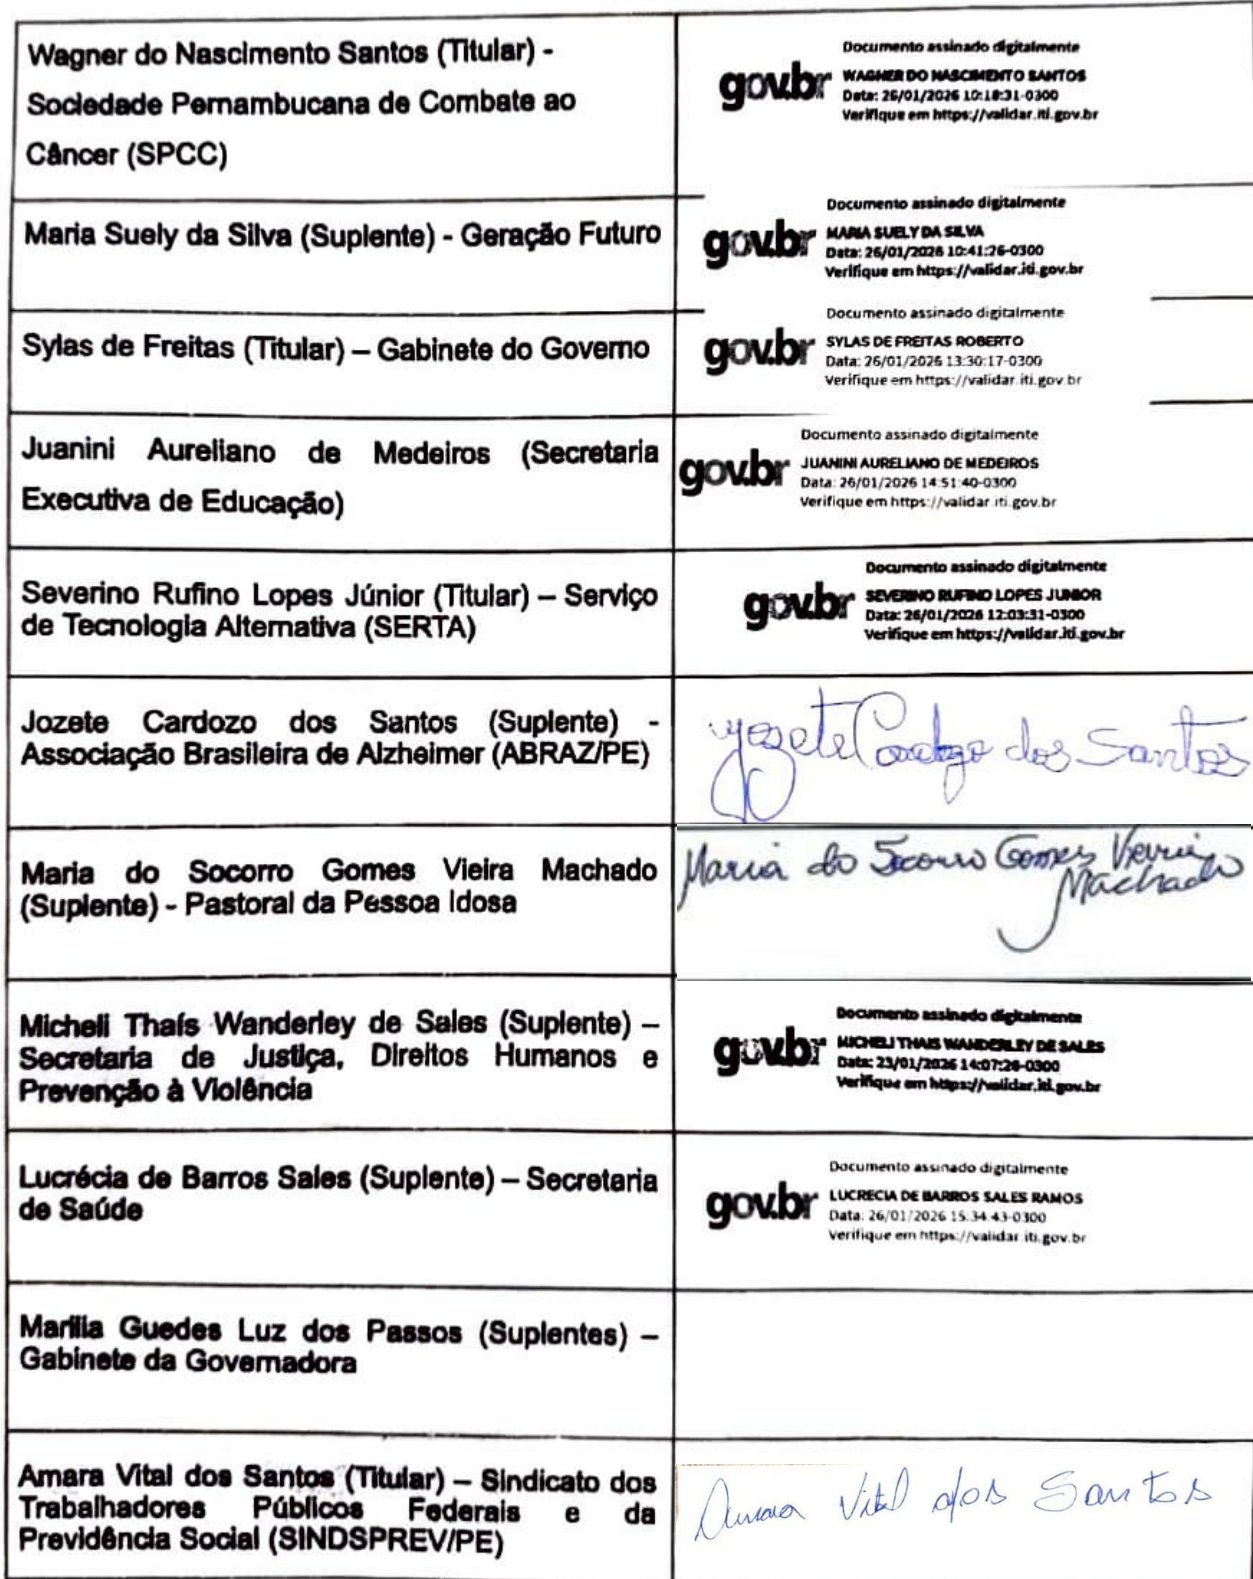 Wagner do Nascimento Santos (Titular) -
Sociedade Pernambucana de Combate ao
Câncer (SPCC)
Documento assinado digitalmente
gov.br WAGNER DO NASCIMENTO SANTOS
Data: 26/01/2026 10:18:31-0300
Verifique em https://validar.iti.gov.br
Maria Suely da Silva (Suplente) - Geração Futuro
Documento assinado digitalmente
gov.br MARIA SUELY DA SILVA
Data: 26/01/2026 10:41:26-0300
Verifique em https://validar.iti.gov.br
Sylas de Freitas (Titular) – Gabinete do Governo
Documento assinado digitalmente
gov.br SYLAS DE FREITAS ROBERTO
Data: 26/01/2026 13:30:17-0300
Verifique em https://validar.iti.gov.br
Juanini Aureliano de Medeiros (Secretaria
Executiva de Educação)
Documento assinado digitalmente
gov.br JUANINI AURELIANO DE MEDEIROS
Data: 26/01/2026 14:51:40-0300
Verifique em https://validar.iti.gov.br
Severino Rufino Lopes Júnior (Titular) – Serviço
de Tecnologia Alternativa (SERTA)
Documento assinado digitalmente
gov.br SEVERINO RUFINO LOPES JUNIOR
Data: 26/01/2026 12:03:31-0300
Verifique em https://validar.iti.gov.br
Jozete Cardozo dos Santos (Suplente) -
Associação Brasileira de Alzheimer (ABRAZ/PE)
Jozete Cardozo dos Santos
Maria do Socorro Gomes Vieira Machado
(Suplente) - Pastoral da Pessoa Idosa
Maria do Socorro Gomes Vieira
Machado
Micheli Thaís Wanderley de Sales (Suplente) –
Secretaria de Justiça, Direitos Humanos e
Prevenção à Violência
Documento assinado digitalmente
gov.br MICHELI THAIS WANDERLEY DE SALES
Data: 23/01/2026 14:07:26-0300
Verifique em https://validar.iti.gov.br
Lucrécia de Barros Sales (Suplente) – Secretaria
de Saúde
Documento assinado digitalmente
gov.br LUCRECIA DE BARROS SALES RAMOS
Data: 26/01/2026 15:34:43-0300
Verifique em https://validar.iti.gov.br
Marilia Guedes Luz dos Passos (Suplentes) –
Gabinete da Governadora
Amara Vital dos Santos (Titular) – Sindicato dos
Trabalhadores Públicos Federais e da
Previdência Social (SINDSPREV/PE)
Amara Vital dos Santos